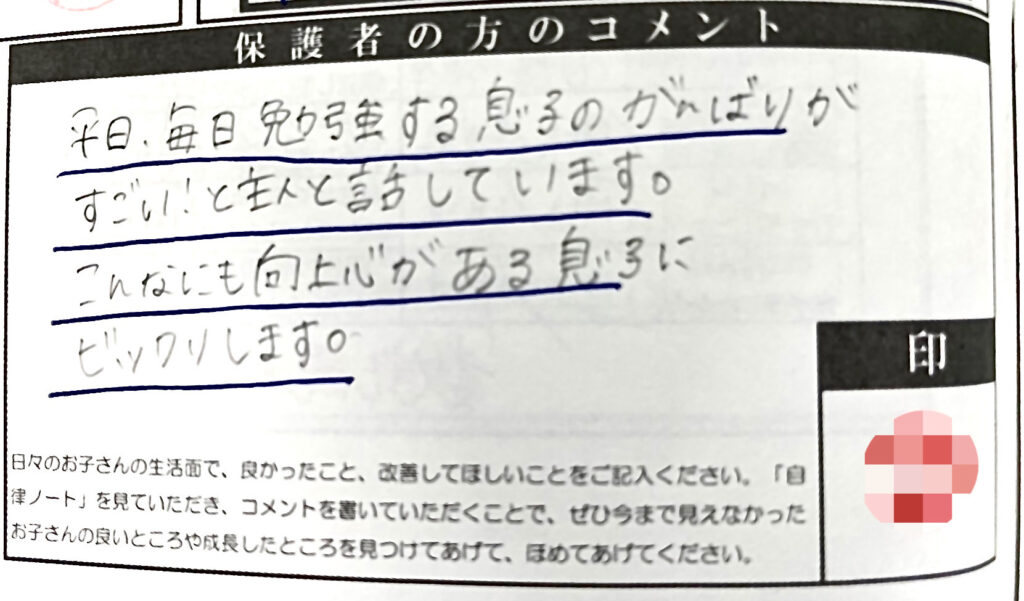 保護者の方のコメント
平日、毎日勉強する息子のがんばりが
すごい！と主人と話しています。
こんなにも向上心がある息子に
ビックリします。
印
日々のお子さんの生活面で、良かったこと、改善してほしいことをご記入ください。「自
律ノート」を見ていただき、コメントを書いていただくことで、ぜひ今まで見えなかった
お子さんの良いところや成長したところを見つけてあげて、ほめてあげてください。